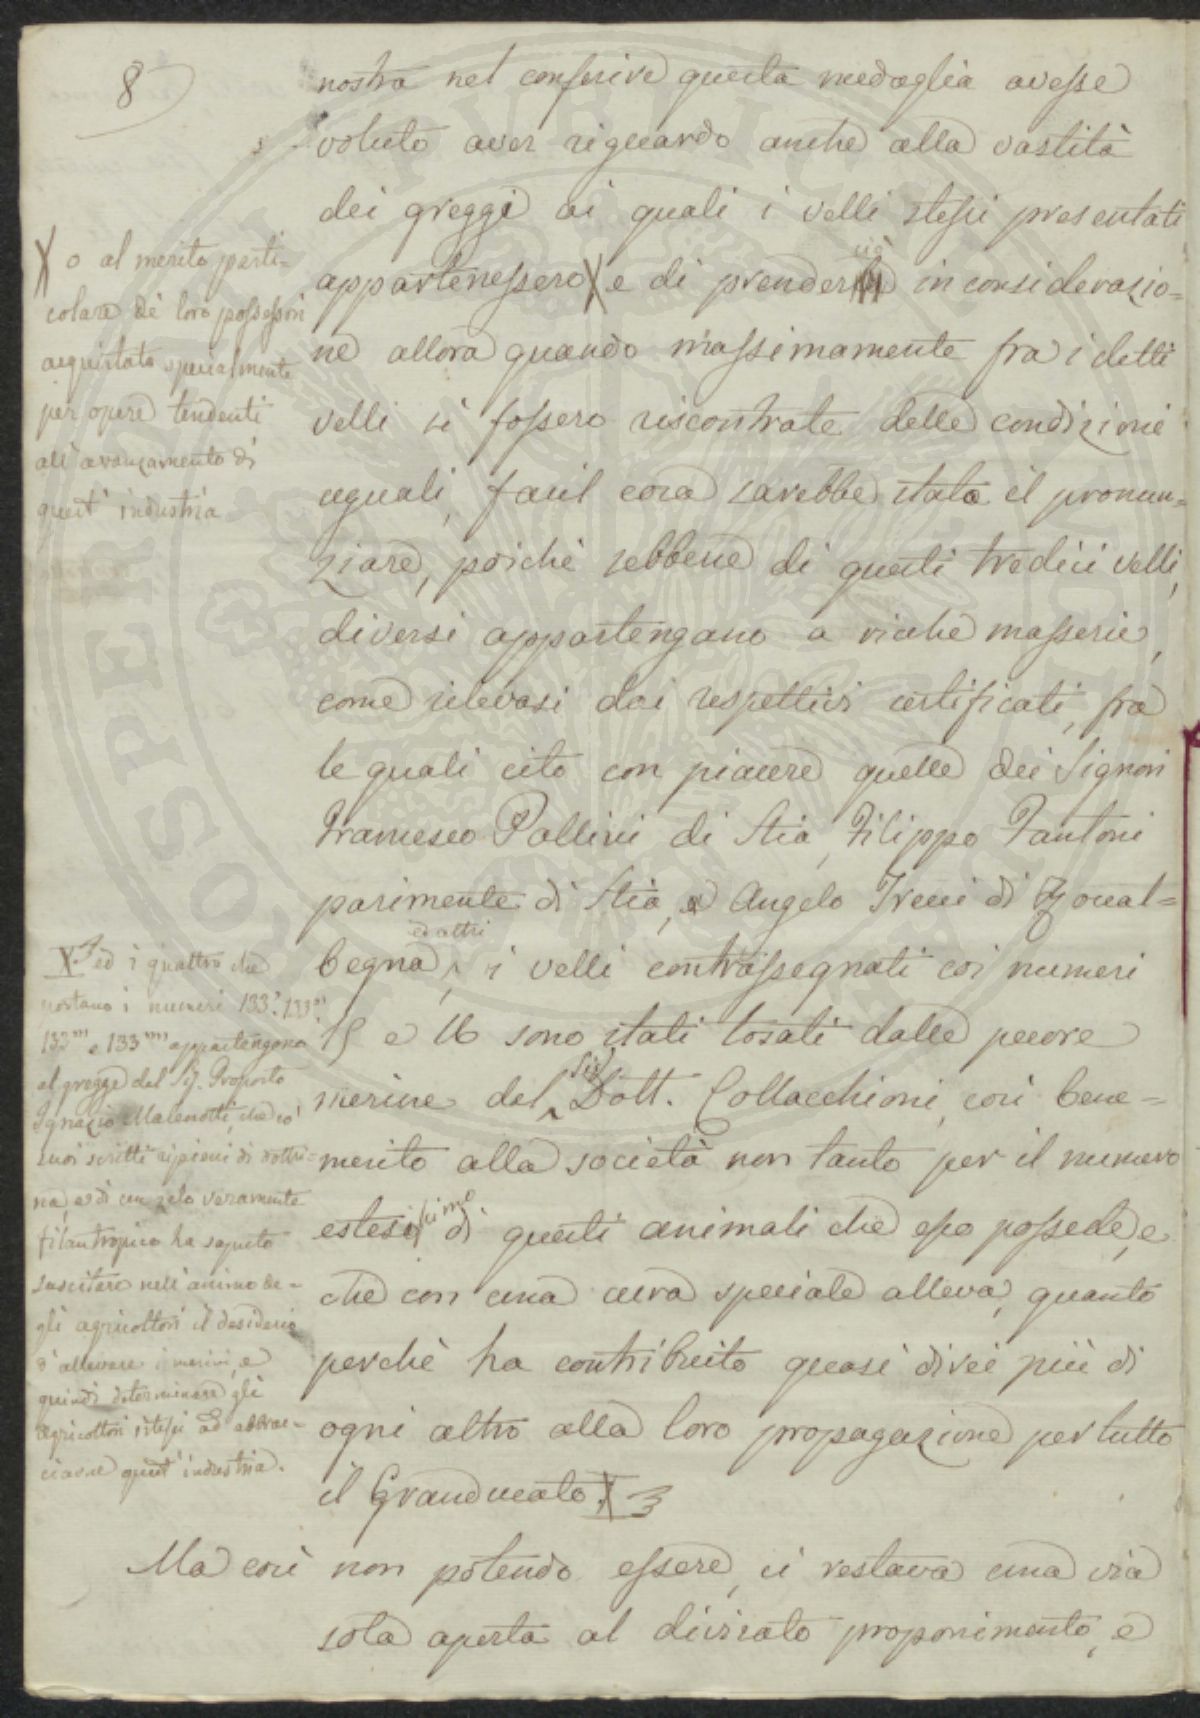 8
nostra nel conferire questa medaglia avesse
voluto aver riguardo anche alla vastità
dei greggi ai quali i velli stessi presentati
appartenessero X e di prender ciò in considerazio=
ne allora quando massimamente fra i detti
velli si fossero riscontrate delle condizioni
uguali, facil cosa sarebbe stata il pronun=
ziare, poichè sebbene di questi tredici velli,
diversi appartengano a ricche masserie,
come rilevasi dai respettivi certificati, fra
le quali cito con piacere quelle dei Signori
Francesco Pallini di Stia, Filippo Fantoni
parimente di Stia, e Angelo Tr di Roccal=
begna, ed altri i velli contrassegnati coi numeri
15 e 16 sono stati tosati dalle pecore
merine del Sig. Dott. Collacchioni, così bene=
merito alla società non tanto per il numero
estesissimo di questi animali che esso possede, e
che con una cura speciale alleva, quanto
perchè ha contribuito quasi direi più di
ogni altro alla loro propagazione per tutto
il Granducato. X
Ma così non potendo essere, ci restava una via
sola aperta al divisato proponimento, e
X o al merito parti=
colare de' loro possessori
acquistato specialmente
per opere tendenti
all'avanzamento di
quest'industria
X ed i quattro che
portano i numeri 133 133
133 e 133 appartengono
al gregge del Sig. Proposto
Ignazio Malenotti, che co'
suoi scritti ripieni di dottri=
na, e di uno zelo veramente
filantropico ha saputo
suscitare nell'animo de=
gli agricoltori il desiderio
d'allevare i merini, e
quindi determinare gli
agricoltori stessi ad abbrac=
ciare quest'industria.